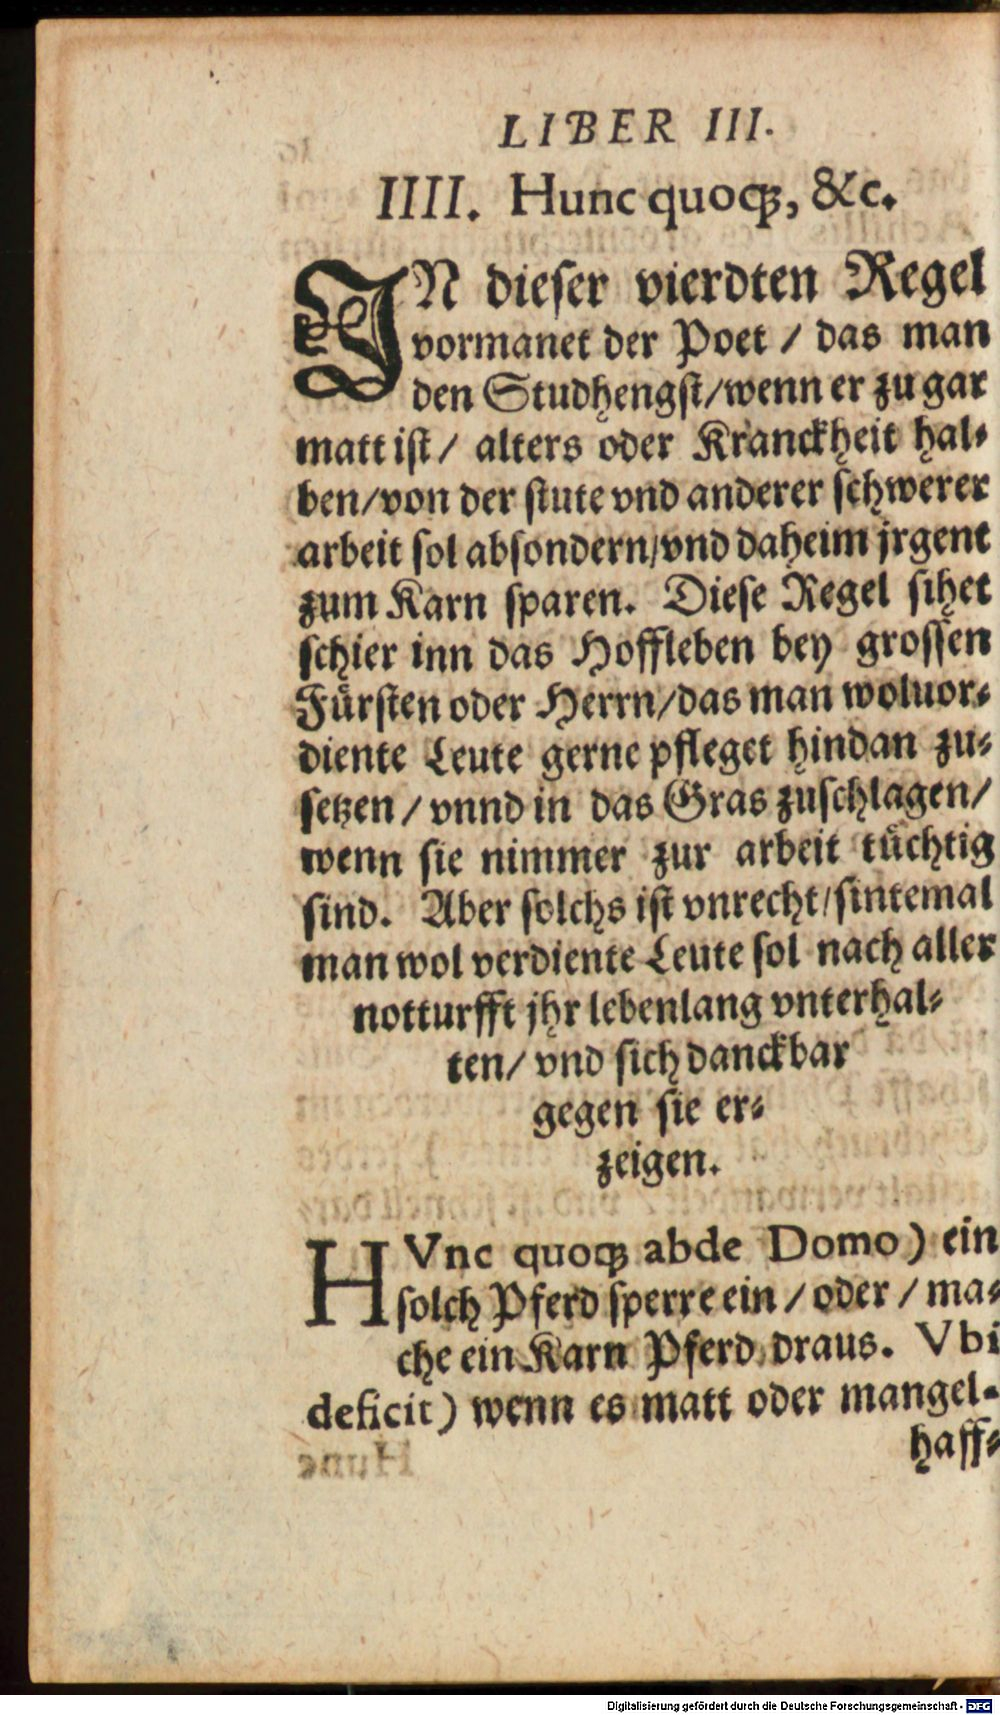 LIBER III.
IIII. Hunc quoqꝫ, &c.
IN dieser vierdten Regel
vormanet der Poet / das man
den Studhengst/wenn er zu gar
matt ist / alters oder Kranckheit hal-
ben/von der stute vnd anderer schwerer
arbeit sol absondern/vnd daheim jrgent
zum Karn sparen. Diese Regel sihet
schier inn das Hoffleben bey grossen
Fuͤrsten oder Herrn/das man woluor-
diente Leute gerne pfleget hindan zu-
setzen / vnnd in das Gras zuschlagen/
wenn sie nimmer zur arbeit tuͤchtig
sind. Aber solchs ist vnrecht/sintemal
man wol verdiente Leute sol nach aller
notturfft jhr lebenlang vnterhal-
ten/ vnd sich danckbar
gegen sie er-
zeigen.
HVnc quoqꝫ abde Domo) ein
solch Pferd sperre ein / oder / ma-
che ein Karn Pferd draus. Vbi
deficit) wenn es matt oder mangel-
haff-
Digitalisierung gefördert durch die Deutsche Forschungsgemeinschaft - DFG